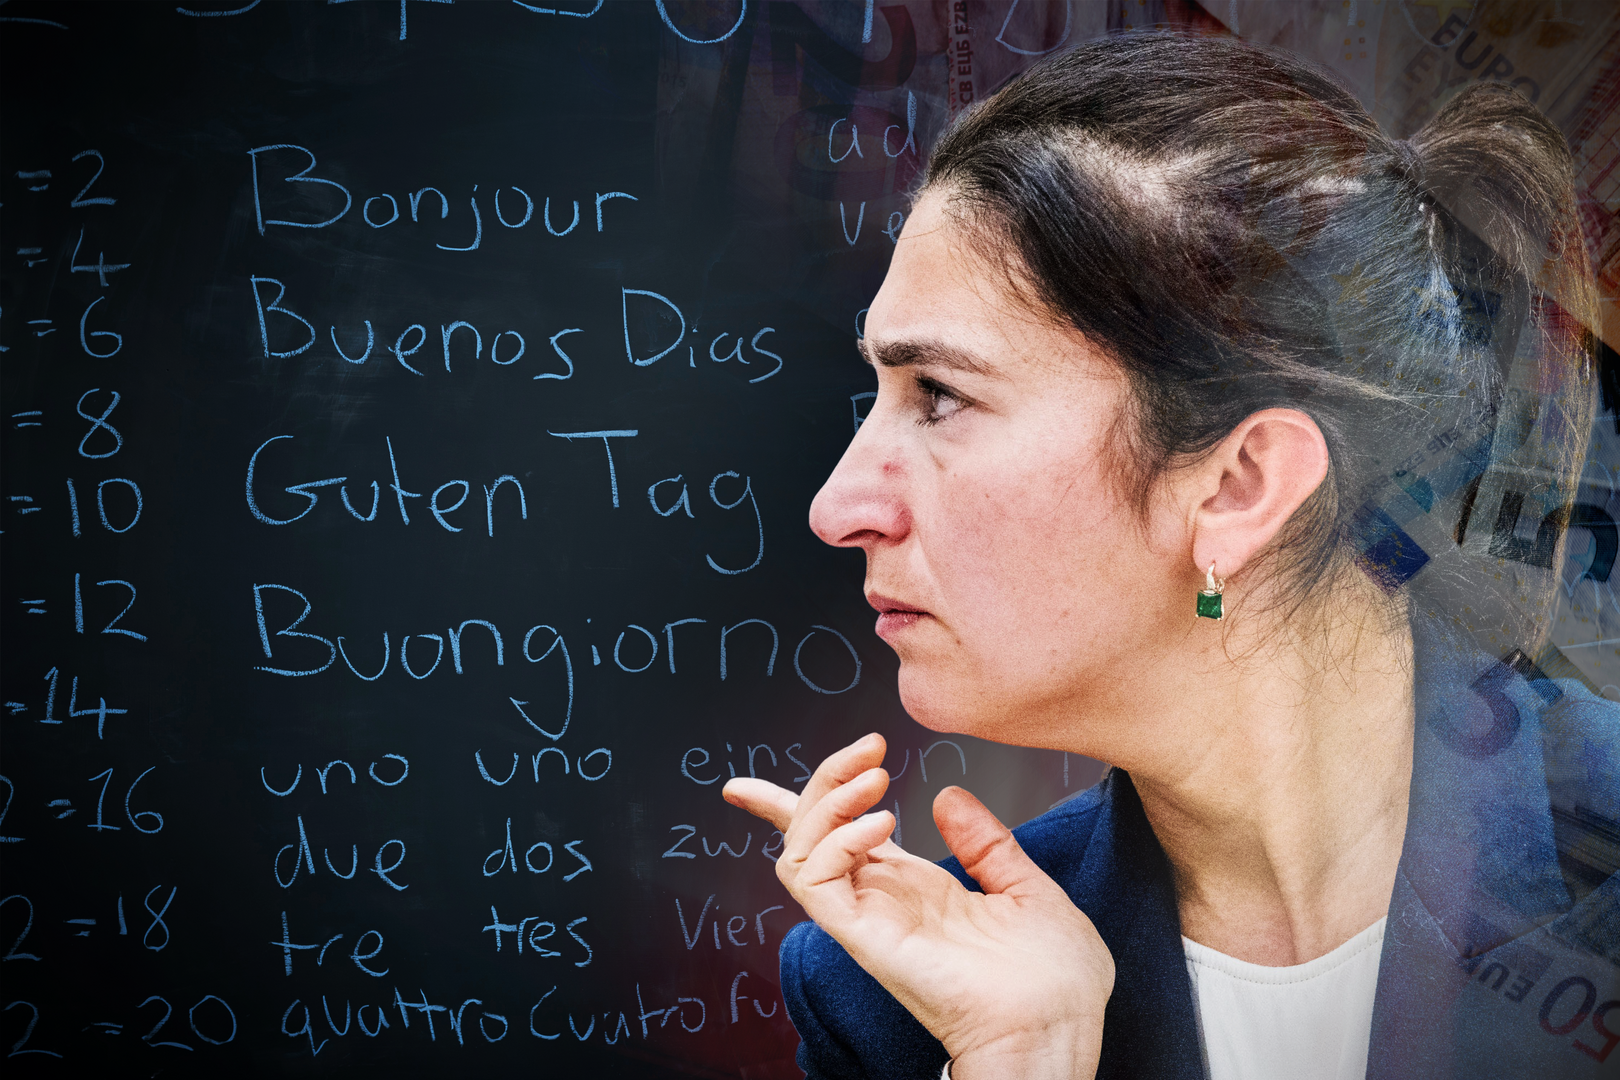 = 2
= 4
= 6
= 8
= 10
= 12
= 14
2 = 16
2 = 18
2 = 20
Bonjour
Buenos Dias
Guten Tag
Buongiorno
uno uno eins un
due dos
tre tres Vier
quattro Cuatro
EURO
50